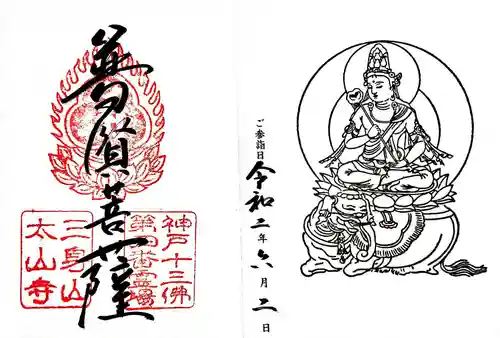 普賢菩薩
神戸十三佛
第四番霊場
三身山
太山寺
ご参詣日 令和二年六月二日